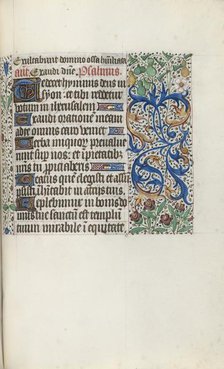 Exultabunt domino ossa humiliata
ant Exaudi dne. Psalmus.
Te decet hymnus deus in
syon: et tibi reddetur
votum in iherusalem
Exaudi orationem meam
ad te omnis caro veniet
Verba iniquor prevalue
runt sup nos: et ipietatib
nris tu ppiciaberis
Beatus que elegisti et assu
psisti: inhabitabit in atriis tuis
Replebimur in bonis do
mus tue sanctum est templum
tuum mirabile in equitate